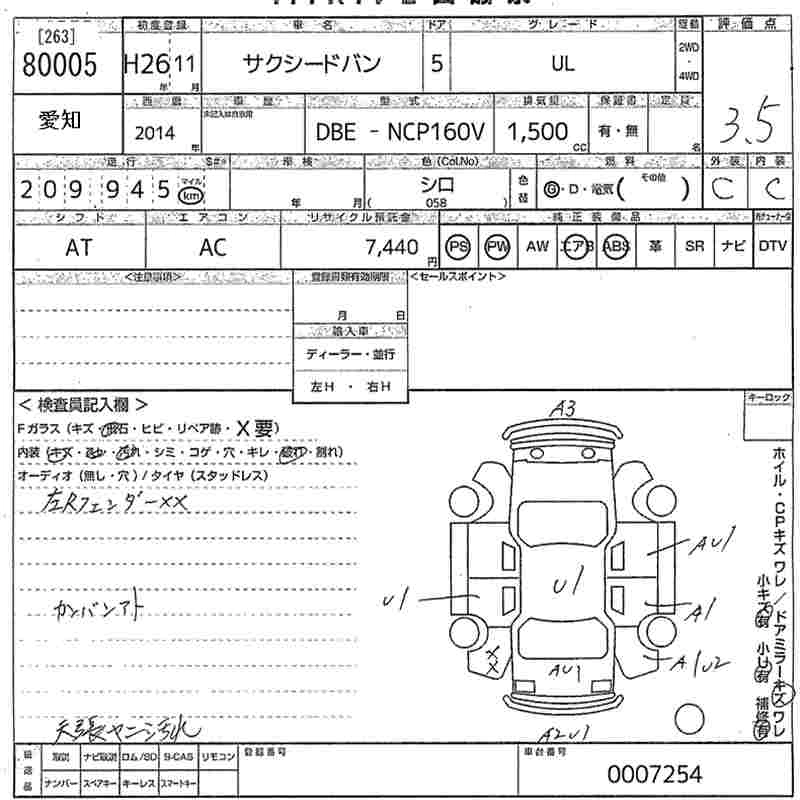 [263]
80005
初度登録
車名
ドア
グレード
駆動
評価点
H26 11
年 月
サクシードバン
5
UL
2WD
・
4WD
3.5
愛知
西暦
車歴
型式
排気量
保証書
定員
2014
年
未記入は自家用
DBE - NCP160V
1,500
CC
有・無
名
走行
車検
色(Col.No)
燃料
外装
内装
209 945
マイル
km
年 月
シロ
( 058 )
色替
G・D・電気( その他 )
C
C
シフト
エアコン
リサイクル預託金
純正装備品
AT
AC
7,440
円
PS
PW
AW
エアB
ABS
革
SR
ナビ
DTV
<注意事項>
登録書類有効期限
<セールスポイント>
月 日
輸入車
ディーラー・並行
左H ・ 右H
< 検査員記入欄 >
キーロック
Fガラス (キズ・飛石・ヒビ・リペア跡・X要)
内装 (キズ・汚れ・シミ・コゲ・穴・キレ・割れ)
オーディオ (無し・穴) / タイヤ (スタッドレス)
左Rフェンダー××
カンバンアト
天張ヤニ汚れ
A3
AU1
U1
U1
A1
A1U2
XX
AU1
A2U1
ホイル・CPキズ ワレ / ドアミラーキズ ワレ
小キズ有 小U有 補修有
取説
ナビ取説
ロム/SD
B-CAS
リモコン
ナンバー
スペアキー
キーレス
スマートキー
登録番号
車台番号
0007254